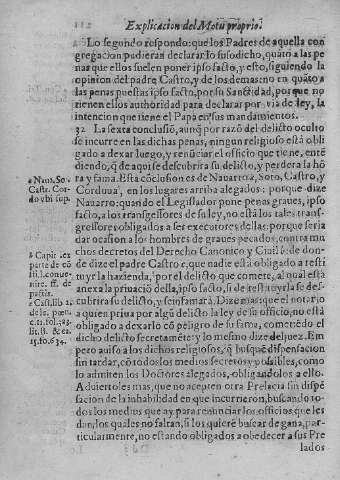 Explicacion del Motu proprio.
Lo segundo respondo: que los Padres de aquella con
gregacion pudieran declarar lo susodicho, quãto a las pe
nas que ellos suelen poner ipso facto, y esto, siguiendo la
opinion del padre Castro, y de los demas: no en quãto a
las penas puestas ipso facto, por su Sanctidad, porque no
tienen ellos authoridad para declarar por via de ley, la
intencion que tiene el Papa en sus mandamientos.
32 La sexta conclusiõ, aunq̃ por razõ del delicto oculto
se incurre en las dichas penas, ningun religioso està obli
gado a dexar luego, y renũciar el officio que tiene, entẽ
diendo, q̃ de aqui se descubrira su delicto, y perdera la hõ
ra y fama. Esta cõclusion es de Nauarro, Soto, Castro, y
Corduua, en los lugares arriba alegados: porque dize
Nauarro: quando el Legislador pone penas graues, ipso
facto, a los transgressores de su ley, no estã los tales trans
gressores obligados a ser executores dellas: porque seria
dar ocasion a los hombres de graues pecados, contra mu
chos decretos del Derecho Canonico y Ciuil: de don-
de dize el padre Castro, que nadie està obligado a resti
tuyr la hazienda, por el delicto que comete, al qual està
anexa la priuaciõ della, ipso facto, si de restituyrla se des-
cubrira su delicto, y se infamarà. Dize mas: que el notario
a quien priua por algũ delicto la ley de su officio, no està
obligado a dexarlo cõ peligro de su fama, cometiẽdo el
dicho delicto secretamẽte: y lo mesmo dize del juez. Em
pero auiso a los dichos religiosos, q̃ busquẽ dispensacion
sin tardar, cõ todos los medios secretos y possibles, como
lo admiten los Doctores alegados, obligandolos a ello.
Aduierto les mas, que no acepten otra Prelacia sin dispẽ
sacion de la inhabilidad en que incurrieron, buscando to
dos los medios que ay para renunciar los officios que les
dan, los quales no faltan, si los quierẽ buscar de gana, par-
ticularmente, no estando obligados a obedecer a sus Pre
lados
a Nau. So.
Cast. Cor-
do vbi sup.
b Capit. ex
parte de cõ
sti.
pastis.
c Castil.
de le. pœn.